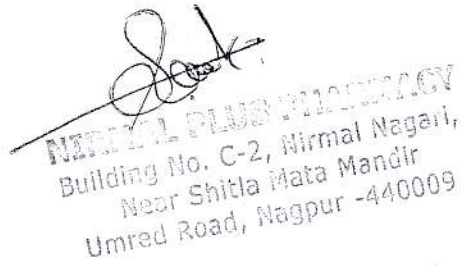 NIRMAL PLUS PHARMACY
Building No. C-2, Nirmal Nagari,
Near Shitla Mata Mandir
Umred Road, Nagpur -440009